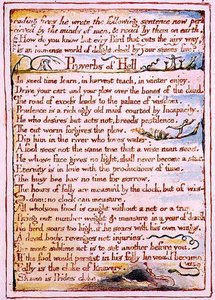 roading fires he wrote the following sentence now per=
cieved by the minds of men, & read by them on earth.
How do you know but ev'ry Bird that cuts the airy way,
Is an immense world of delight, clos'd by your senses five?
Proverbs of Hell
In seed time learn, in harvest teach, in winter enjoy.
Drive your cart and your plow over the bones of the dead.
The road of excess leads to the palace of wisdom.
Prudence is a rich ugly old maid courted by Incapacity.
He who desires but acts not, breeds pestilence.
The cut worm forgives the plow.
Dip him in the river who loves water.
A fool sees not the same tree that a wise man sees.
He whose face gives no light, shall never become a star.
Eternity is in love with the productions of time.
The busy bee has no time for sorrow.
The hours of folly are measur'd by the clock, but of wis-
-dom: no clock can measure.
All wholsom food is caught without a net or a trap.
Bring out number weight & measure in a year of dearth.
No bird soars too high, if he soars with his own wings.
A dead body, revenges not injuries.
The most sublime act is to set another before you.
If the fool would persist in his folly he would become
wise
Folly is the cloke of knavery.
Shame is Prides cloke.